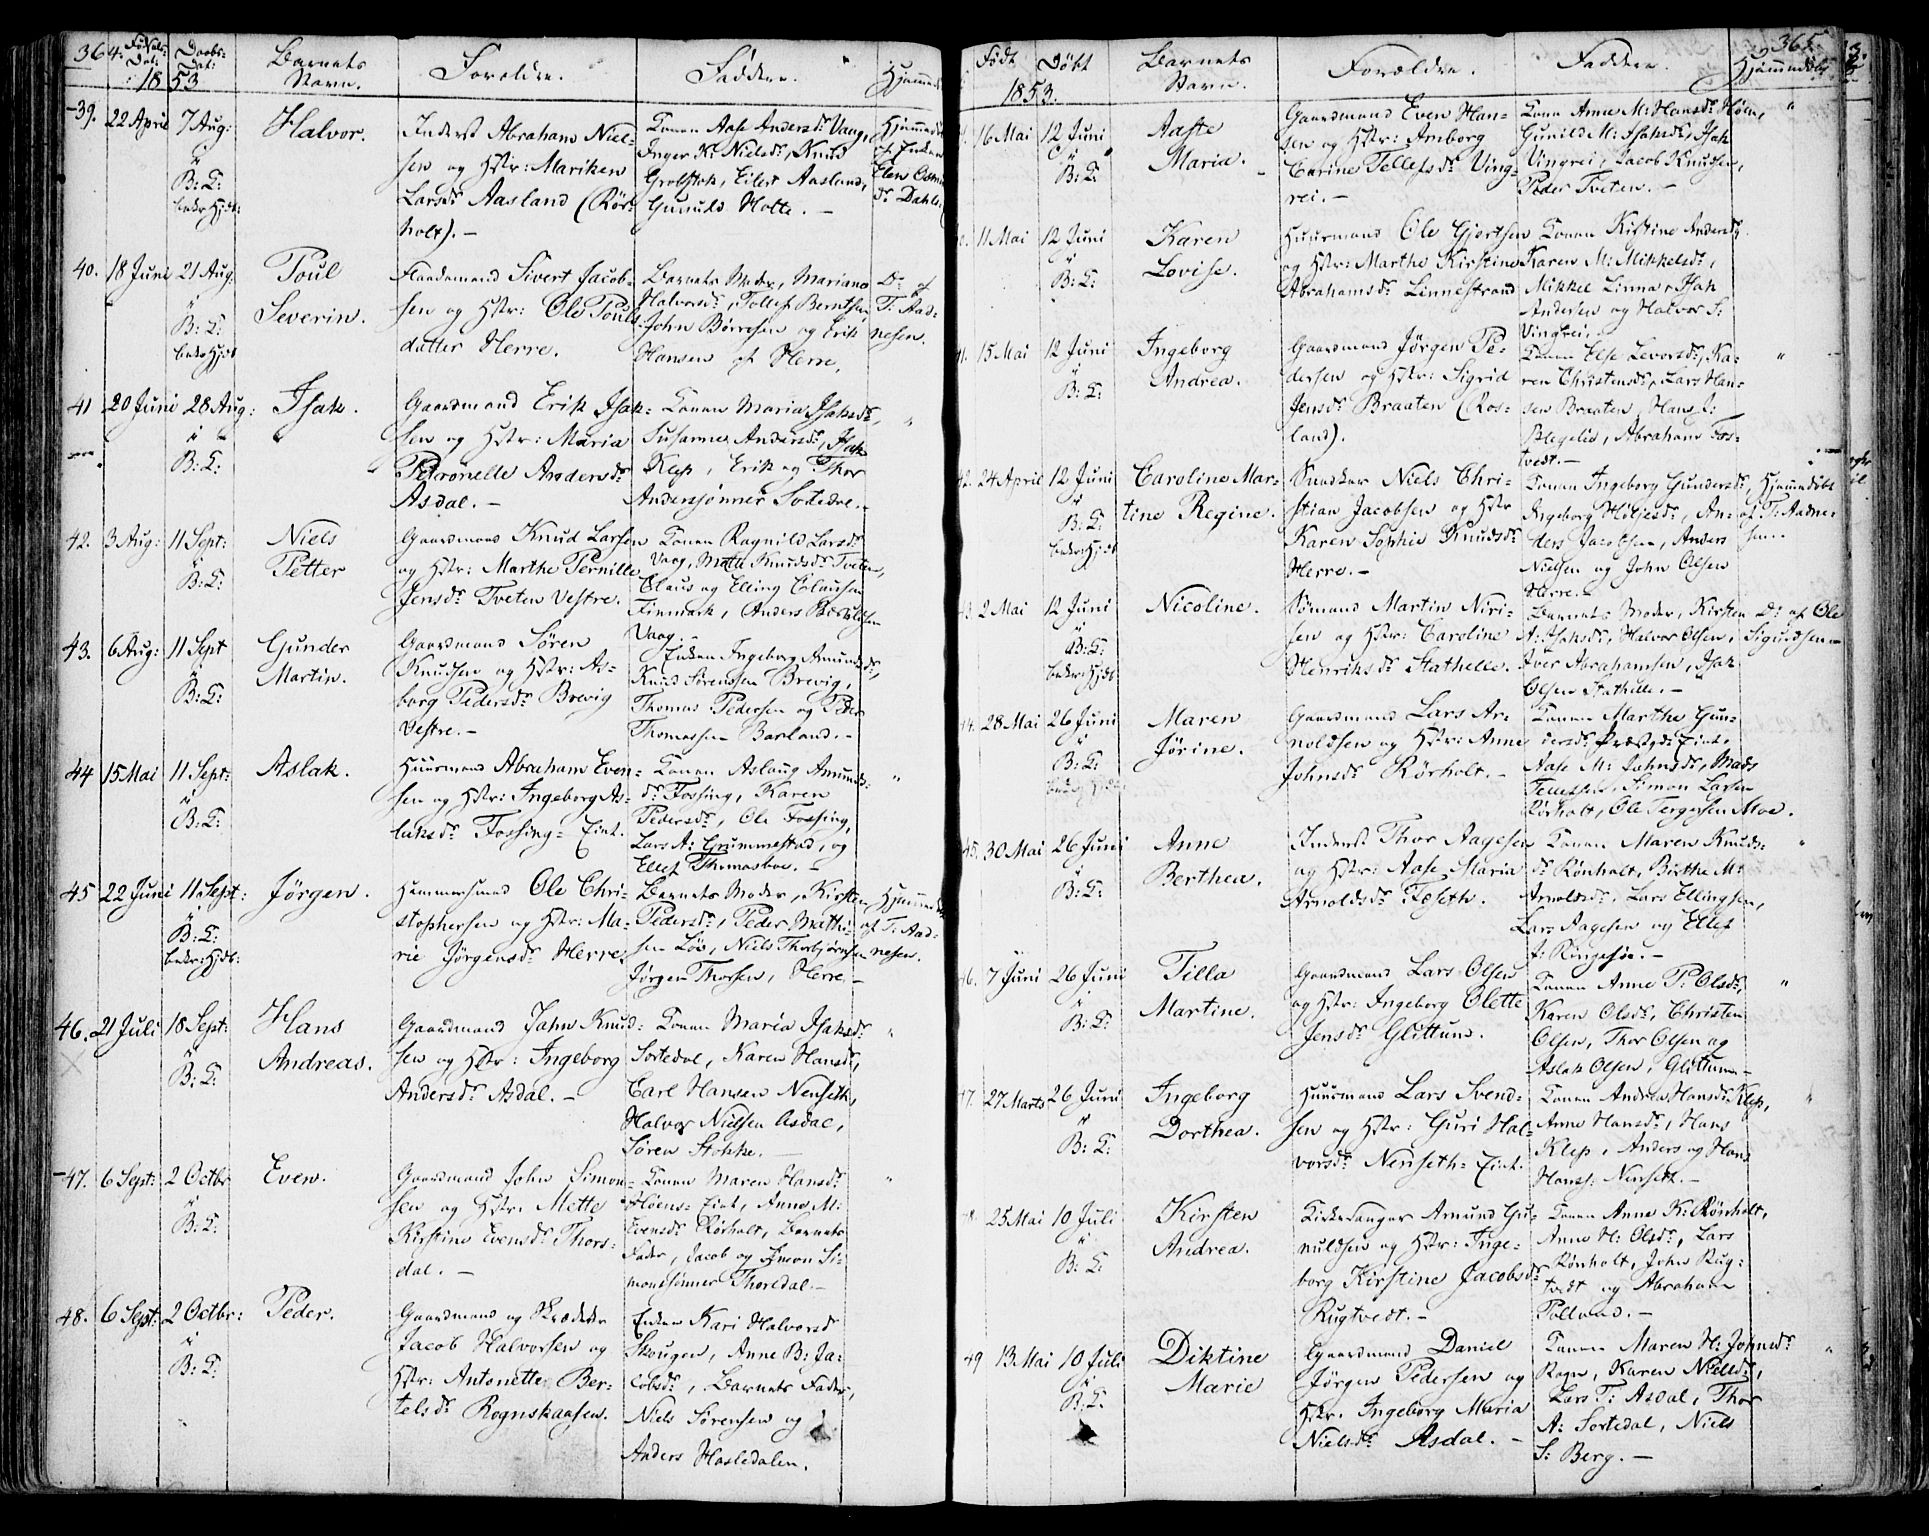 364.
Fødsels-
Dat:
Daabs-
Dat:
1853
Barnets
Navn.
Foreldre.
Faddere.
39. 22 April 7 Aug:
B: T:
Halvor.
Inderst Abraham Niel-
sen og Hstr: Mariken
Larsdr Aasland (Rør-
holt). —
Konen Aase Andersdr Vaag,
Inger K: Nielsdr, Knud
Grobstok, Eilert Aasland,
Gunuld Holte. —
40. 18 Juni 21 Aug:
B: T:
Poul
Severin.
Sivert Jacob-
sen og Hstr: Ole Pouls-
datter Herre.
Barnets Moder, Mariane
Halvorsdr, Tollef Berntsen
John Börresen og Erik
Hansen af Herre.
Do af
T: Aad-
nesen.
41 20 Juni 28 Aug:
B: T:
Isak.
Gaardmand Erik Isak-
sen og Hstr: Maria
Petronelle Andersdr
Asdal. —
Konen Maria Isaksdr,
Susanne Andersdr, Isak
Klep, Erik og Thor
Anderssønner Sortedal. —
42. 3 Aug: 11 Sept:
B: T:
Niels
Petter
Gaardmand Knud Larsen
og Hstr: Marthe Pernille
Jensdr Tveten Vestre.
Konen Ragnild Larsdr
Vaag, Mette Knudsdr Tveten,
Claus og Elling Clausen
Finmark, Anders
Vaag.
43. 6 Aug: 11 Sept
B: T:
Gunder
Martin.
Gaardmand Søren
Knudsen og Hstr: As-
borg Pedersdr Brevig
Vestre. —
Enken Ingeborg Amundsdr,
Knud Sørenssen Brevig,
Thomas Pedersen og Peder
Thomassen Barland. —
44 15 Mai 11 Sept:
B: T:
Aslak.
Huusmand Abraham Even-
sen og Hstr: Ingeborg As-
laksdr Fossing- Eiet.
Konen Aslaug Amunds-
dr Fossing, Karen
Pedersdr, Ole Fossing,
Lars A: Grummestad, og
Ellef Thomasbae. —
45 22 Juni 11 Sept:
B: T:
Jørgen.
Hammersmed Ole Chri-
stophersen og Hstr: Ma-
rie Jørgensdr Herre.
Barnets Moder, Kirsten
Pedersdr, Peder Mathi-
sen Löv, Niels Thorbjørnsen
Jørgen Thorsen, Herre. —
af T: Aad-
nesen.
46. 21 Juli 18 Sept:
B: T:
Hans
Andreas.
Gaardmand John Knud-
sen og Hstr: Ingeborg
Andersdr Asdal. —
Konen Maria Isaksdr
Sortedal, Karen Hansdr,
Carl Hansen Nenseth,
Halvor Nielsen Asdal,
Søren Stokke. —
47. 6 Sept: 2 Octbr
B: T:
Even.
Gaardmand John Simon-
sen og Hstr: Mette
Kirstine Evensdr Thors-
dal. —
Konen Maren Hansdr
Høens- Eiet, Anne M:
Evensdr Rörholt, Barnets
Fader, Jacob og Simon Si-
monssønner Thorsdal —
48. 6 Sept: 2 Octbr:
B: T:
Peder.
Gaardmand og Skrædder
Jacob Halvorsen og
Hstr: Antonette Ber-
telsdr Rognskaasen.
Enken Kari Halvorsdr
Skougen, Anne B: Ja-
cobsdr, Barnets Fader,
Niels Sørensen og
Anders Hasledalen.
365.
Født
Døbt
1853.
Barnets
Navn.
Forældre.
Faddere.
16 Mai 12 Juni
B: T:
Aaste
Maria.
Gaardmand Even Han-
sen og Hstr: Anborg
Carine Tellefsdr Ving-
rei. —
Konen Anne M: Hansdr Høen,
Gunild M: Isaksdr, Isak
Vingrei, Jacob Knudsen,
Peder Tveten. —
11 Mai 12 Juni
B: T:
Karen
Lovise.
Huusmand Ole Gjertsen
og Hstr: Marthe Kirstine
Abrahamsdr Linnestrand
Konen Kistine Andersdr
Karen M: Mikkelsdr,
Mikkel Linna, Isak
Andersen og Halvor S:
Vingrei.
41. 15 Mai 12 Juni
B: T:
Ingeborg
Andrea.
Gaardmand Jørgen Pe-
dersen og Hstr: Sigrid
Jensdr Braaten (Ros-
land).
Konen Else Levorsdr, Ka-
ren Christensdr, Lars Han-
sen Braaten, Hans J:
Blegelid, Abraham Fos-
tvedt. —
42. 24 April 12 Juni
B: T:
Caroline Mar-
tine Regine.
Snedker Niels Chri-
stian Jacobsen og Hstr
Karen Sophie Knudsdr
Herre. —
Konen Ingeborg Gundersdr,
Ingeborg Höljesdr, An-
ders Jacobsen, Anders
Nielsen og John Olsen
Herre. —
Hjemmedøbt
af T: Aadne-
sen.
2 Mai 12 Juni
B: T:
Nicoline.
Sømand Martin Niri-
sen og Hstr: Caroline
Henriksdr Stathelle.
Barnets Moder, Kirsten
A: Isaksdr, Halvor Olsen,
Iver Abrahamsen, Isak
Olsen Stathelle. —
Do af Ole
Sigurdsen
28 Mai 26 Juni
B: T:
Maren
Jörine.
Gaardmand Lars Ar-
noldsen og Hstr: Anne
Johnsdr Rørholt. —
Konen Marthe Gun-
dersdr Præstgds Eiet.
Aase M: Johnsdr, Mads
Simon Larsen
Rörholt, Ole Tergersen Moe.
45. 30 Mai 26 Juni
B: T:
Anne
Berthea.
Inderst Thor Aagesen
og Hstr: Aase Maria
Arnoldsdr Foseth.
Konen Maren Knuds-
dr Rønholt, Birthe M:
Arnoldsdr, Lars Ellingsen,
Lars Aagesen og Ellef
J: Ringesøe. —
46. 7 Juni 26 Juni
B: T:
Tilla
Martine.
Gaardmand Lars Olsen
og Hstr: Ingeborg Olette
Jensdr Glittum.
Konen Anne P: Olsdr,
Karen Olsdr, Christen
Olsen, Thor Olsen og
Aslak Olsen, Glittum —
47. 27 Marts 26 Juni
B: T:
Ingeborg
Dorthea.
Huusmand Lars Svend-
sen og Hstr: Guri Hal-
vorsdr Nenseth- Eiet.
Konen Andrea Hansdr Klep,
Anne Hansdr, Hans
Klep, Anders og Hans
Hanss: Nenseth. —
25 Mai 10 Juli
B: T:
Kirsten
Andrea.
Kirkesanger Amund Gu-
nuldsen og Hstr: Inge-
borg Kirstine Jacobsdr
Rugtvedt. —
Konen Anne K: Rønholt,
Anne H: Olsdr, Lars
Rønholt, John Rug-
tvedt og Abraham
49 13 Mai 10 Juli
B: T:
Diktine
Marie
Gaardmand Daniel
Jørgen Pedersen og
Hstr. Ingeborg Maria
Nielsdr Asdal. —
Konen Maren H: Johnsdr
Rogn, Karen Nielsdr,
Lars T: Asdal, Thor
A: Sortedal, Niels
S: Berg. —